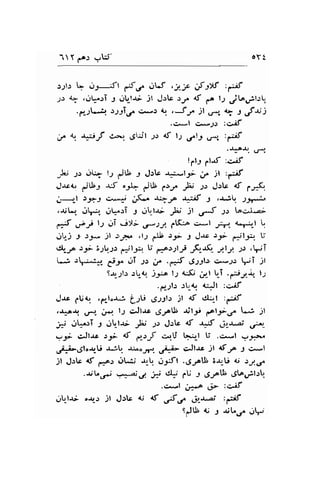 ۵۳٤
کتاب دهم ۶۱۲
گفتم: گلاوکن عزیز، گمان می‌کنم اکنون جا دارد
پاداش‌هائی را هم که مرد عادل از خدایان و آدمیان، چه در
زندگی و چه پس از مرگ، به دست می‌آورد بشماریم.
گفت: درست است.
گفتم: پس وامی را که در اثنای بحث گرفتید به من
پس بدهید.
گفت: کدام وام؟
گفتم: از من خواستید عادل و ظالم را چنان در نظر
بگیرم که عادل در نظر مردم ظالم جلوه کند وظالم بعدل
مشهور باشد، و گفتید هرچند ممکن نیست وجود این
خصلت‌ها در کسی از نظر خدایان و آدمیان پنهان بماند،
با اینهمه بهتر است هنگام بررسی خلاف آن را فرض کنیم
تا بتوانیم خود عدل و خود ظلم را، مجرد از سود و زیان
آنها، در برابر یکدیگر قراردهیم تا بتوانیم دربارهٔ خود هریک
از آنها درست داوری کنیم. من در آن موقع پیشنهاد شما
را پذیرفتم. آیا این نکته را هنوز به‌یاد دارید؟
گفت: البته به‌یاد داریم.
گفتم: اینك که از داوری فارغ شده‌ایم، به‌نام عدل
از شما می‌خواهم فوائد ظاهری عدالت را بمن پس بدهید،
یعنی تصدیق کنید که عادل در نظر خدایان و آدمیان نیز
محبوب است. تا اینجا ثابت کردیم که خود عدالت خوب
است و هرکه از عدالت حقیقی بهره‌مند باشد فایده‌ای‌حقیقی
می‌برد نه فایدهٔ ظاهری. اکنون باید نشان دهیم که عادل از
پاداش‌های ظاهری و نام نیك نیز بی‌نصیب نمی‌ماند.
گفت: حق همین است.
گفتم: تصدیق می‌کنی که نه عادل از دیده خدایان
نهان می‌ماند و نه ظالم؟